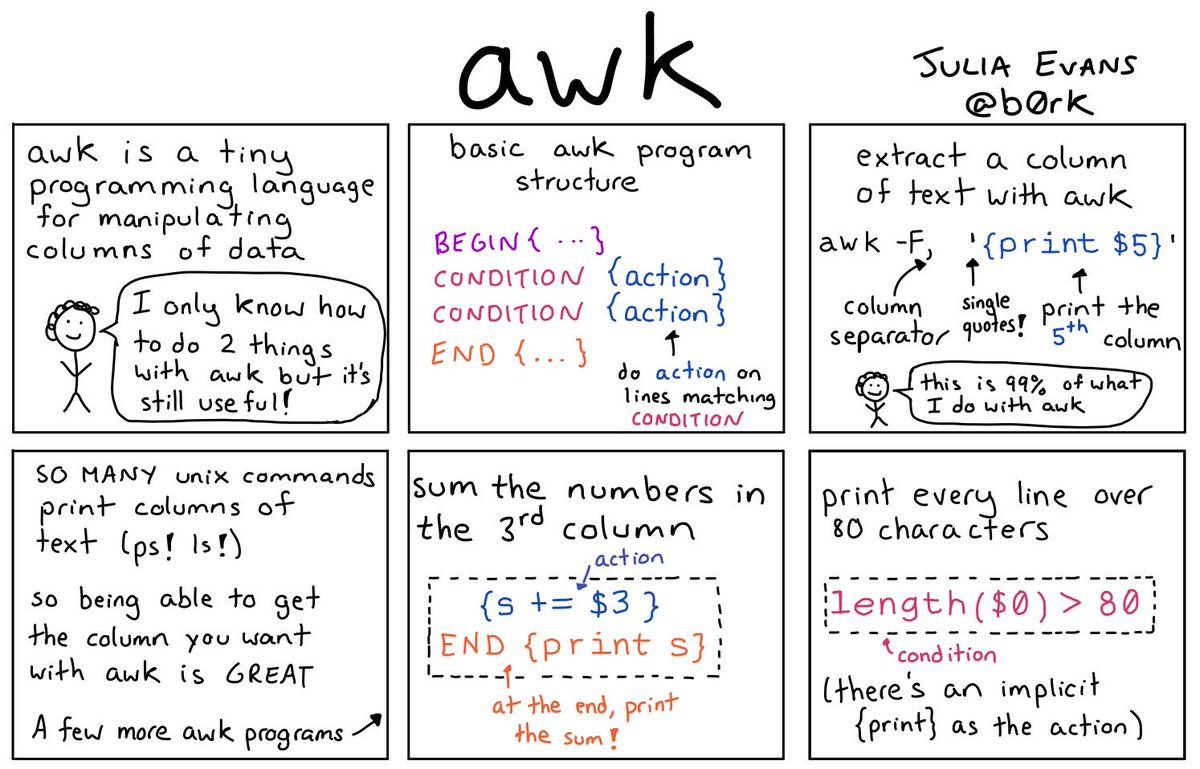 awk
JULIA EVANS
@b0rk
awk is a tiny
programming language
for manipulating
columns of data
I only know how
to do 2 things
with awk but it's
still useful!
basic awk program
structure
BEGIN{ ... }
CONDITION {action}
CONDITION {action}
END {...}
do action on
lines matching
CONDITION
extract a column
of text with awk
awk -F, '{print $5}'
column
separator
single
quotes!
print the
5th
column
this is 99% of what
I do with awk
SO MANY unix commands
print columns of
text (ps! ls!)
so being able to get
the column you want
with awk is GREAT
A few more awk programs
sum the numbers in
the 3rd column
action
{s += $3 }
END {print s}
at the end, print
the sum!
print every line over
80 characters
length($0) > 80
condition
(there's an implicit
{print} as the action)